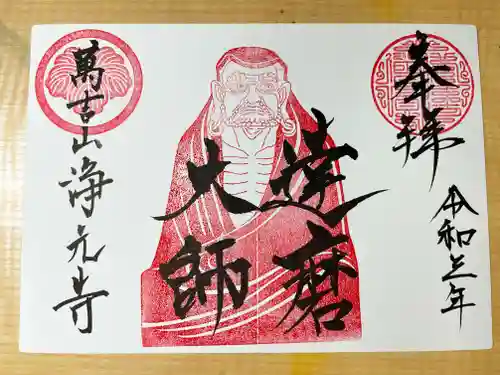 奉拝
令和年
達磨
大師
萬吉山淨元寺